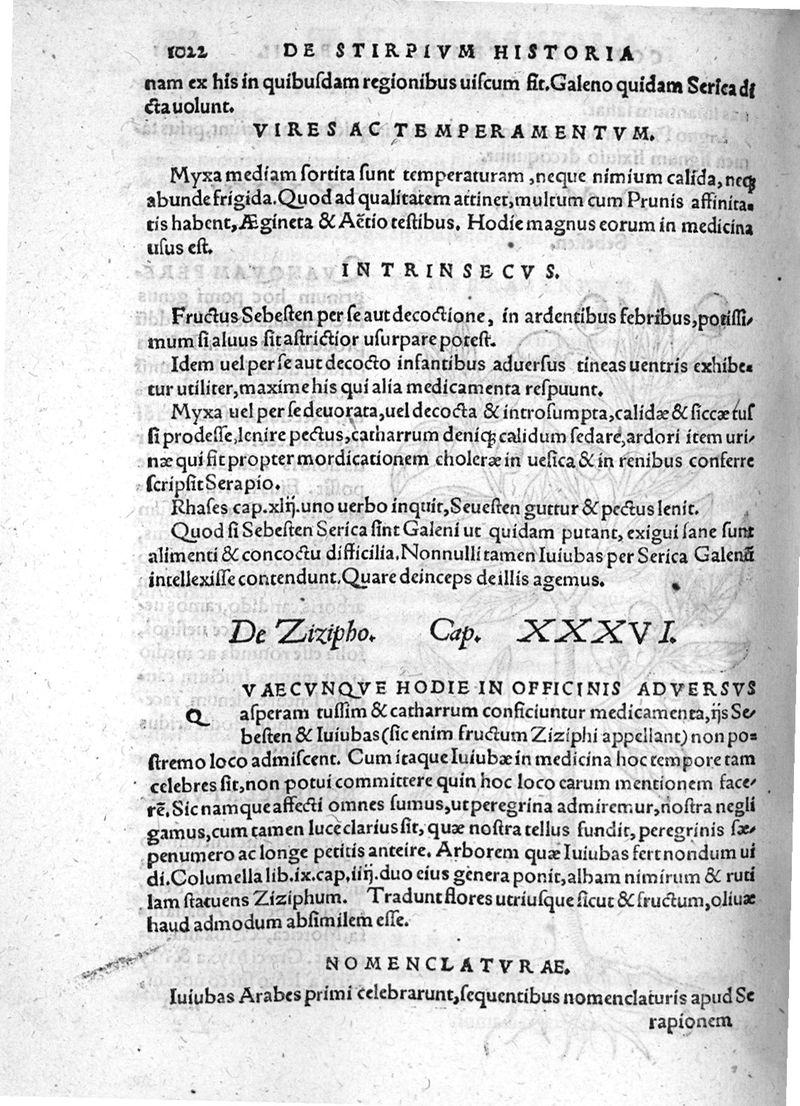 1022 DE STIRPIVM HISTORIA
nam ex his in quibusdam regionibus uiscum fit. Galeno quidam Serica di
cta uolunt.
VIRES AC TEMPERAMENTVM.
Myxa mediam sortita sunt temperaturam, neque nimium calida, neq;
abunde frigida. Quod ad qualitatem attinet, multum cum Prunis affinita-
tis habent, Ægineta & Aëtio testibus. Hodie magnus eorum in medicina
usus est.
INTRINSECVS.
Fructus Sebesten per se aut decoctione, in ardentibus febribus, potissi-
mum si aluus sit astrictior usurpare potest.
Idem uel per se aut decocto infantibus aduersus tineas uentris exhibe-
tur utiliter, maxime his qui alia medicamenta respuunt.
Myxa uel per se deuorata, uel decocta & introsumpta, calidæ & siccæ tus
si prodesse, lenire pectus, catharrum deniq; calidum sedare, ardori item uri-
næ qui fit propter mordicationem choleræ in uesica & in renibus conferre
scripsit Serapio.
Rhases cap. xlij. uno uerbo inquit, Seuesten guttur & pectus lenit.
Quod si Sebesten Serica sint Galeni ut quidam putant, exigui sane sunt
alimenti & concoctu difficilia. Nonnulli tamen Iuiubas per Serica Galenũ
intellexisse contendunt. Quare deinceps de illis agemus.
De Zizipho. Cap. XXXVI.
QVAECVNQVE HODIE IN OFFICINIS ADVERSVS
asperam tussim & catharrum conficiuntur medicamenta, ijs Se-
besten & Iuiubas (sic enim fructum Ziziphi appellant) non po-
stremo loco admiscent. Cum itaque Iuiubæ in medicina hoc tempore tam
celebres sit, non potui committere quin hoc loco earum mentionem face-
rẽ. Sic namque affecti omnes sumus, ut peregrina admiremur, nostra negli
gamus, cum tamen luce clarius sit, quæ nostra tellus fundit, peregrinis sæ-
penumero ac longe petitis anteire. Arborem quæ Iuiubas fert nondum ui
di. Columella lib. ix. cap. iiij. duo eius genera ponit, albam nimirum & ruti
lam statuens Ziziphum. Tradunt flores utriusque sicut & fructum, oliuæ
haud admodum absimilem esse.
NOMENCLATVRAE.
Iuiubas Arabes primi celebrarunt, sequentibus nomenclaturis apud Se
rapionem